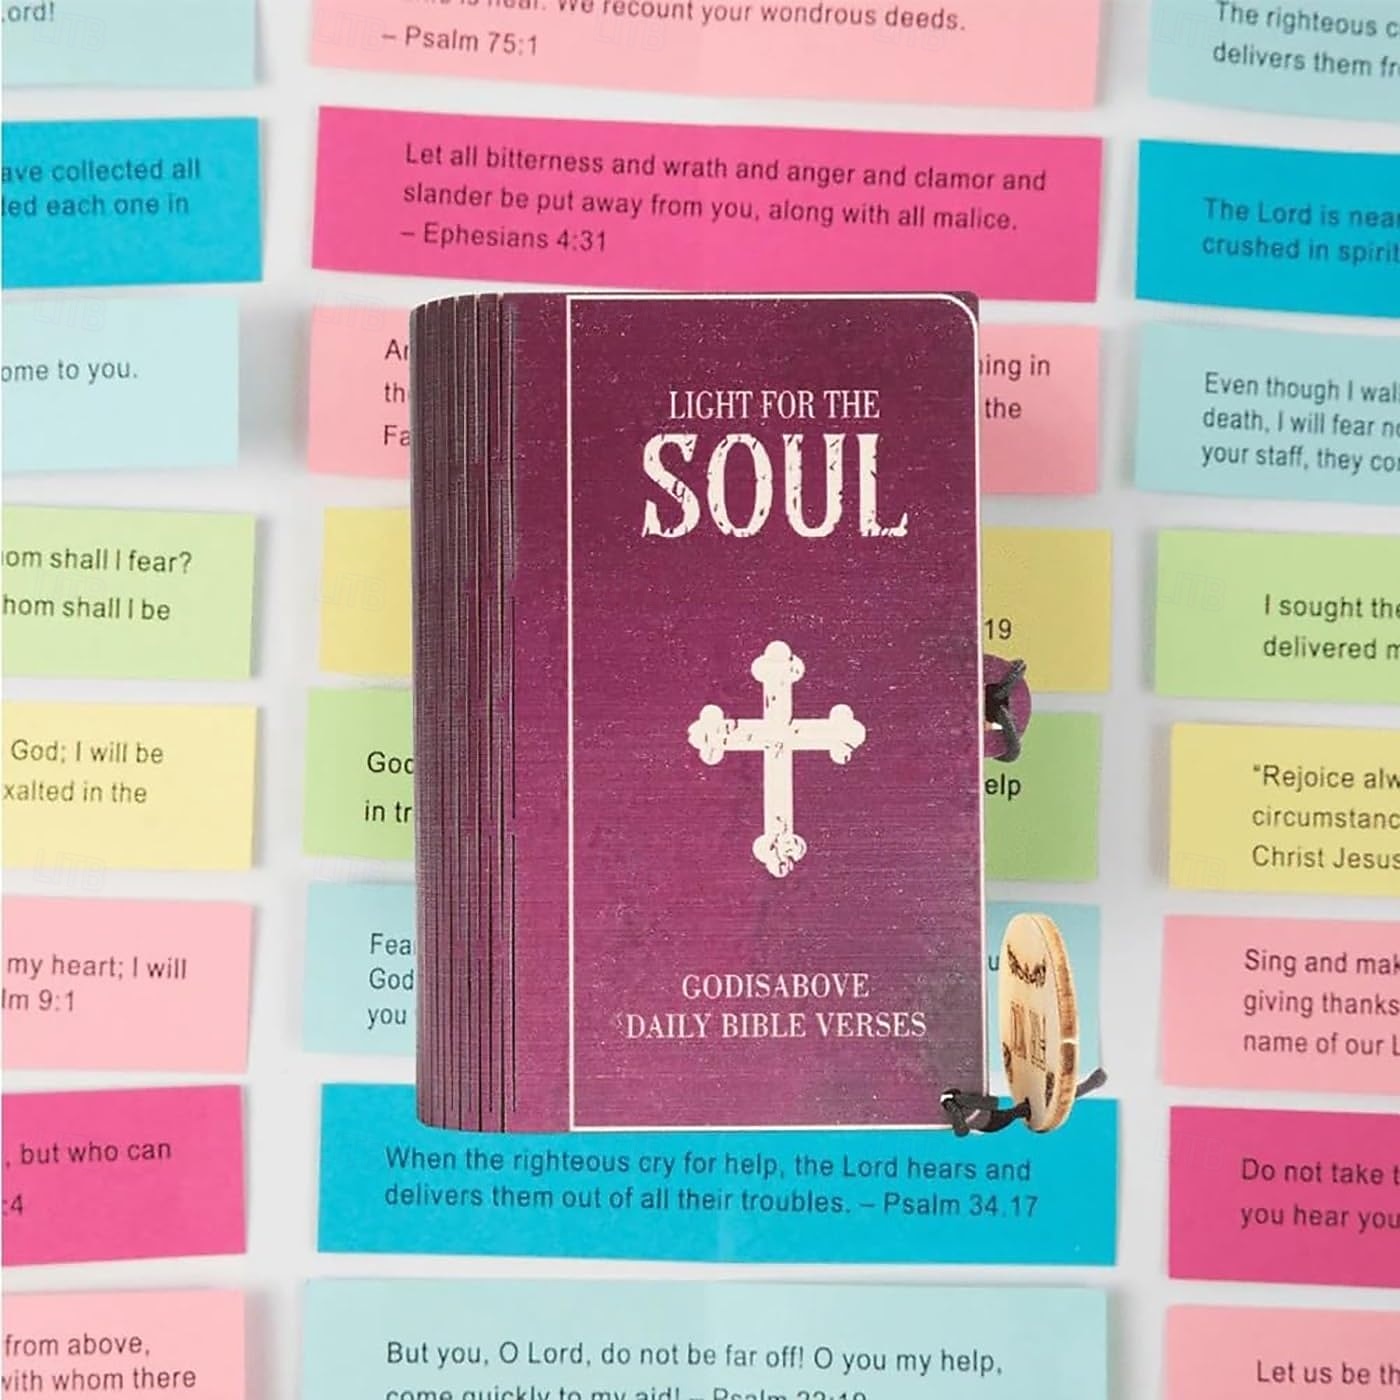 ord!
We recount your wondrous deeds.
– Psalm 75:1
The righteous c
delivers them fr
ave collected all
led each one in
Let all bitterness and wrath and anger and clamor and
slander be put away from you, along with all malice.
– Ephesians 4:31
The Lord is near
crushed in spirit
ome to you.
Ar
th
Fa
ing in
the
Even though I wal
death, I will fear no
your staff, they co
LIGHT FOR THE
SOUL
om shall I fear?
hom shall I be
19
I sought the
delivered m
God; I will be
xalted in the
God
in tr
elp
"Rejoice alw
circumstanc
Christ Jesus
my heart; I will
lm 9:1
Fea
God
you
u
Sing and mak
giving thanks
name of our L
GODISABOVE
DAILY BIBLE VERSES
, but who can
:4
When the righteous cry for help, the Lord hears and
delivers them out of all their troubles. – Psalm 34.17
Do not take t
you hear you
from above,
with whom there
But you, O Lord, do not be far off! O you my help,
come quickly to my aid! – Psalm 22:19
Let us be th